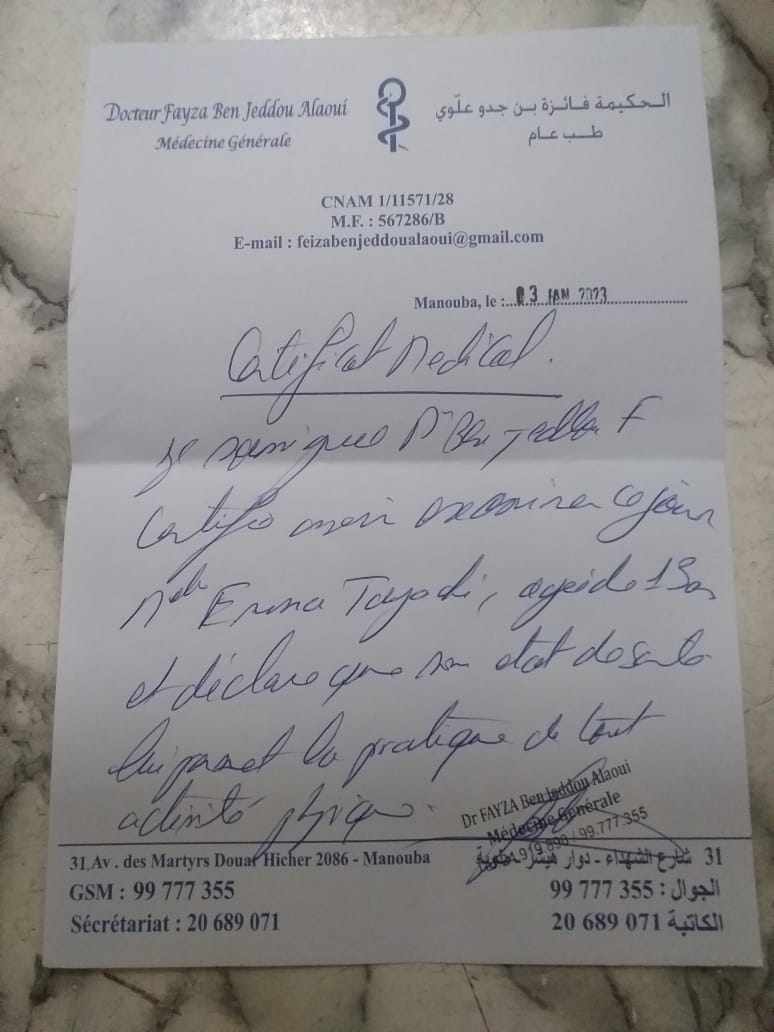 Docteur Fayza Ben Jeddou Alaoui
Médecine Générale
الحكيمة فائزة بن جدو علّوي
طب عام
CNAM 1/11571/28
M.F. : 567286/B
E-mail : feizabenjeddoualaoui@gmail.com
Manouba, le : 03 JAN 2023
Certificat Medical.
Je Dr Ben Jeddou F
Certifie avoir examiner ce jour
Melle Emna agée de ans
et déclare que son état de sante
lui permet la pratique de tout
activité physique.
Dr FAYZA Ben Jeddou Alaoui
Médecine Générale
99.777.355
31, Av . des Martyrs Douar Hicher 2086 - Manouba
31 شارع الشهداء - دوار هيشر -
GSM : 99 777 355
الجوال : 355 777 99
Sécrétariat : 20 689 071
الكاتبة 071 689 20